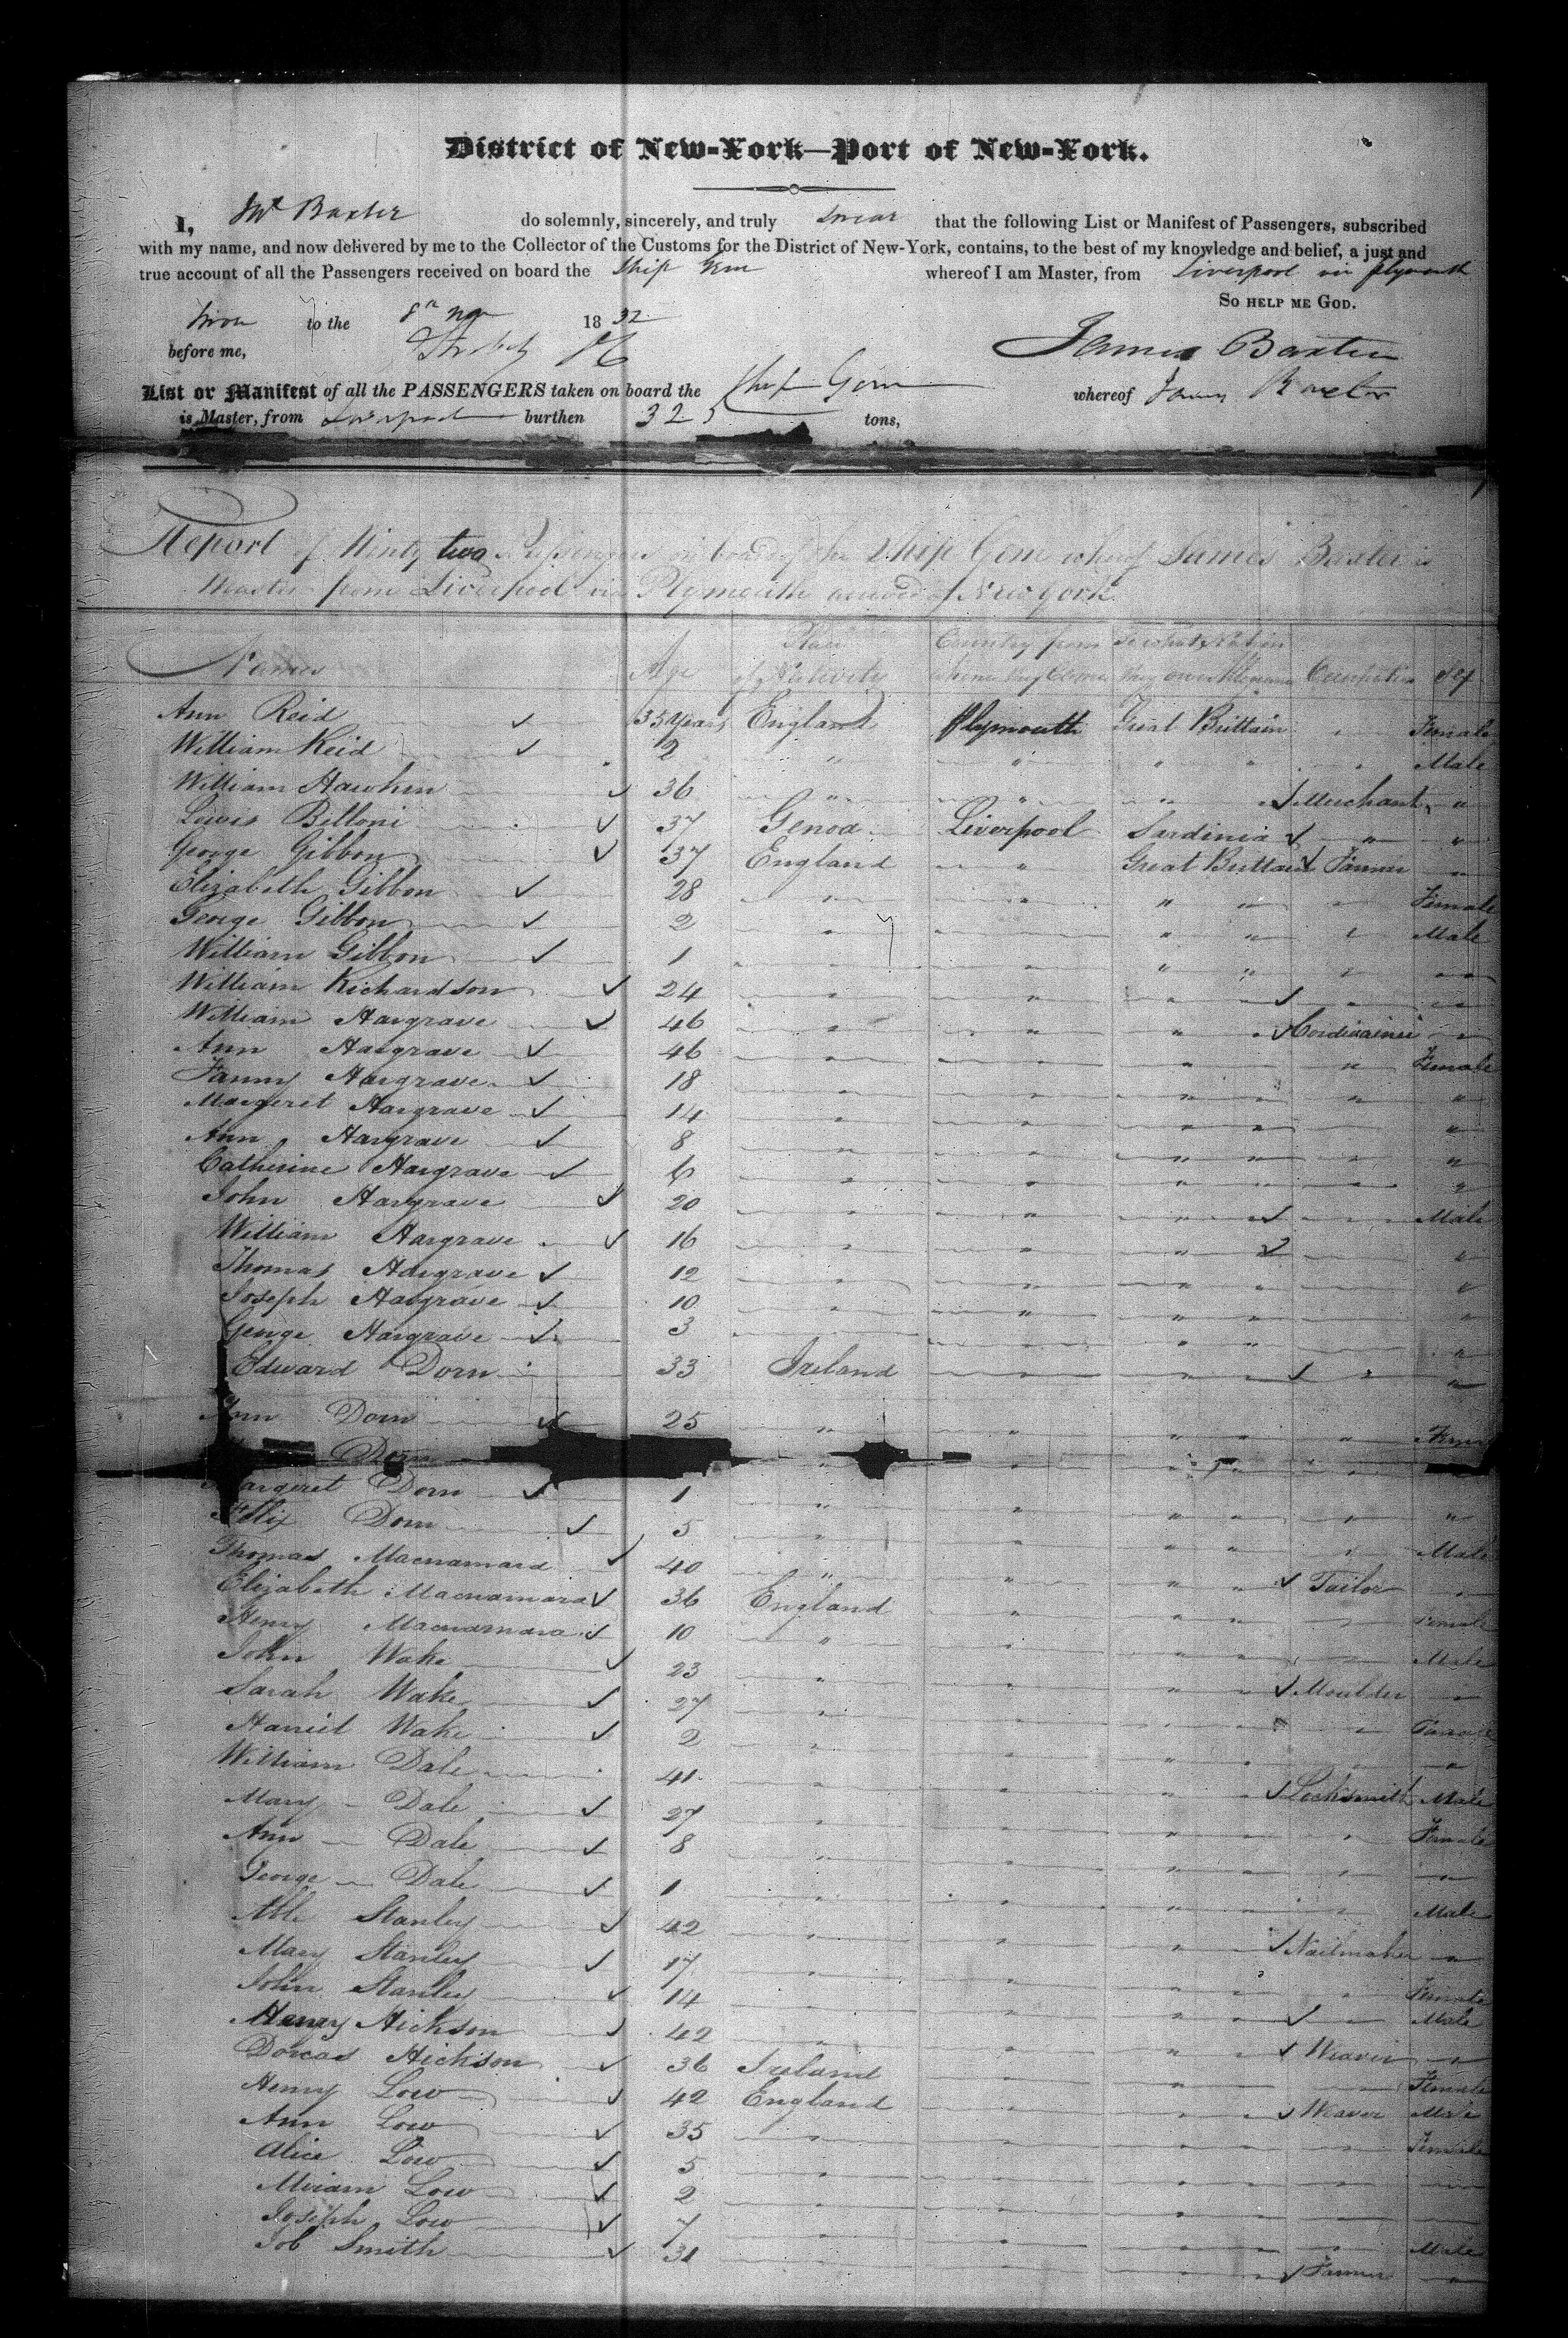 District of New-York—Port of New-York.
I, Baxter do solemnly, sincerely, and truly swear that the following List or Manifest of Passengers, subscribed
with my name, and now delivered by me to the Collector of the Customs for the District of New-York, contains, to the best of my knowledge and belief, a just and
true account of all the Passengers received on board the Ship Gem whereof I am Master, from Liverpool via Plymouth
So help me God.
to the 8th 1832
before me,
James Baxter
List or Manifest of all the PASSENGERS taken on board the Ship Gem whereof James Baxter
is Master, from Liverpool burthen 325 tons,
Report of Ninety two Passengers on board of the Ship Gem whereof James Baxter is
Master from Liverpool via Plymouth of New York
Names Age Place of Nativity Country from whence they Came To what Nation they owe Allegiance Occupation Sex
Ann Reid 35 years England Plymouth Great Brittain " Female
William Reid 2 " " " " " Male
William Hawken 36 " " " Merchant "
Lewis Belloni 37 Genoa Liverpool Sardinia " "
George Gibbon 37 England " Great Brittain Farmer "
Elizabeth Gibbon 28 " " " " " Female
George Gibbon 2 " " " " " Male
William Gibbon 1 " " " " " "
William Richardson 24 " " " " "
William Hargrave 46 " " " " Cordwainer "
Ann Hargrave 46 " " " " " Female
Fanny Hargrave 18 " " " " " "
Margeret Hargrave 14 " " " " " "
Ann Hargrave 8 " " " " " "
Catherine Hargrave 6 " " " " " "
John Hargrave 20 " " " " Male
William Hargrave 16 " " " "
Thomas Hargrave 12 " " " " "
Joseph Hargrave 10 " " " " "
George Hargrave 3 " " " "
Edward Dorn 33 Ireland " " " " "
Ann Dorn 25 " " " " "
Dorn " " " "
Margeret Dorn 1 " " " " " "
Felix Dorn 5 " " " " " Male
Thomas Macnamara 40 " " " " Tailor "
Elizabeth Macnamara 36 England " " " Female
Henry Macnamara 10 " " " " Male
John Wake 23 " " " " Moulder "
Sarah Wake 27 " " " " Female
Harriet Wake 2 " " " " "
William Dale 41 " " " " Locksmith Male
Mary Dale 27 " " " " " Female
Ann Dale 8 " " " " " "
George Dale 1 " " " " " Male
Able Stanley 42 " " " Nailmaker "
Mary Stanley 17 " " " " " Female
John Stanley 14 " " " " Male
Henry Hickson 42 " " " " Weaver "
Dorcas Hickson 36 Ireland " " Female
Henry Low 42 England " " " Weaver Male
Ann Low 35 " " " " " Female
Alice Low 5 " " " " " "
Miriam Low 2 " " " " " "
Joseph Low 7 " " " " " Male
Job Smith 31 " " " " Farmer "